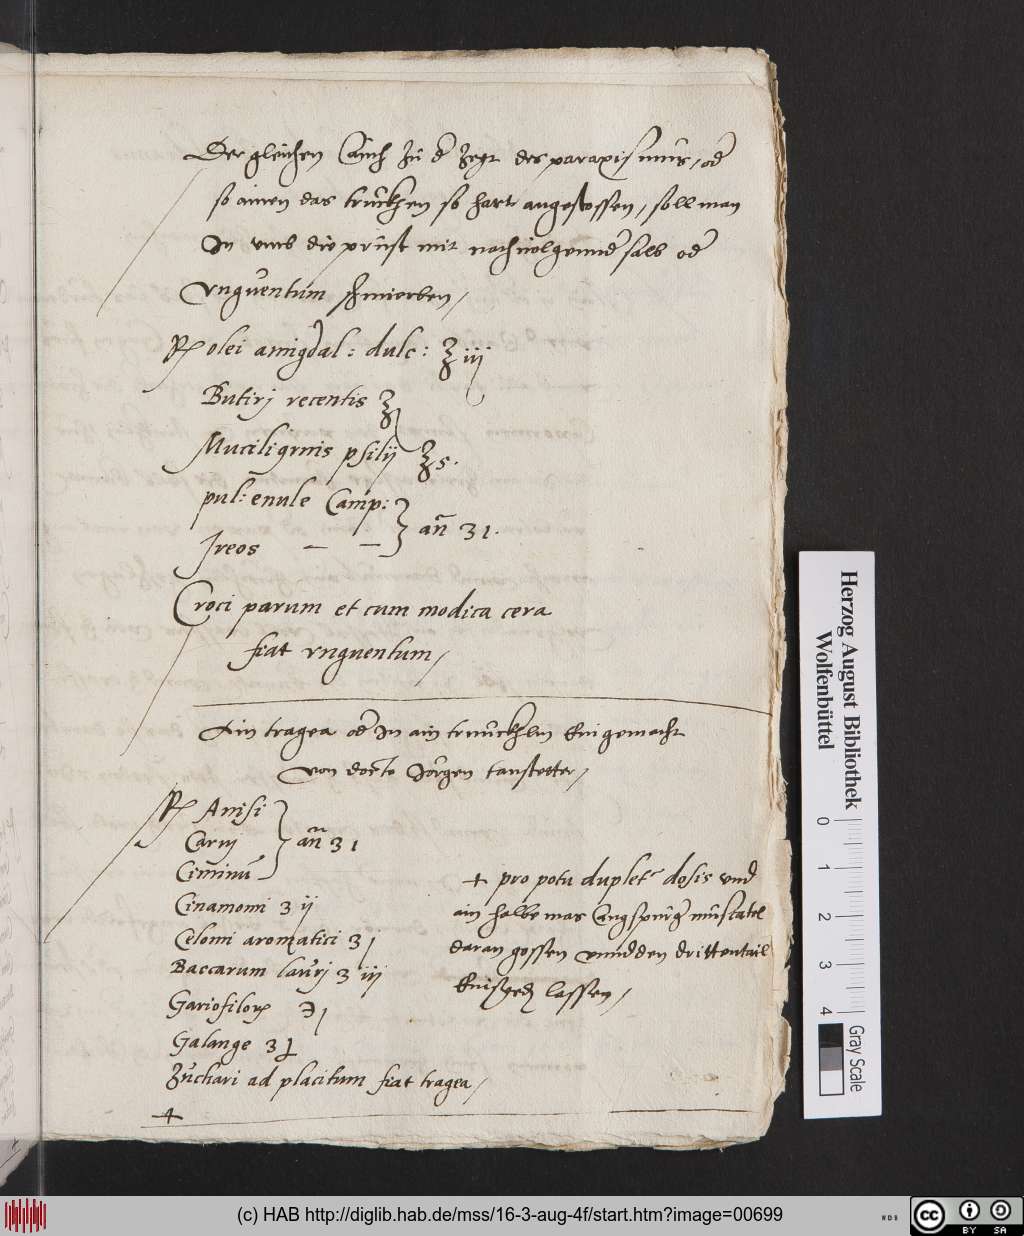 Dergleichen auch zu der Zeyt des paraxismus, oder
so ainen das trucken so hart angestossen, soll man
In umb die prust mit nachvolgennder salb oder
Vnguentum schmierben,
Rp olei amigdal: dulc: ℥ iij
Butirj recentis ℥ j
Muciliginis psilij ℥ s.
pul: enule Camp:
Jreos — — } añ ʒ 1.
Croci parum et cum modica cera
fiat vnguentum,
Ain tragea oder In ain trunckhlen Eingemacht
von doctor Jörgen tanstetter,
Rp Anisi
Carvj } añ ʒ 1
Ciminū
Cinamomi ʒ ij
Calomi aromatici ʒ j
Baccarum laurj ʒ iij
Gariofilorum ℈ j
Galange ʒ j
Zuckari ad placitum fiat tragea,
+
+ pro potu duplet dosis vnd
ain halbe mas muscatel
daran gossen vnnd den drittentail
Einsieden lassen,
Herzog August Bibliothek
Wolfenbüttel
0 1 2 3 4
Gray Scale
(c) HAB http://diglib.hab.de/mss/16-3-aug-4f/start.htm?image=00699
WDB
cc BY SA